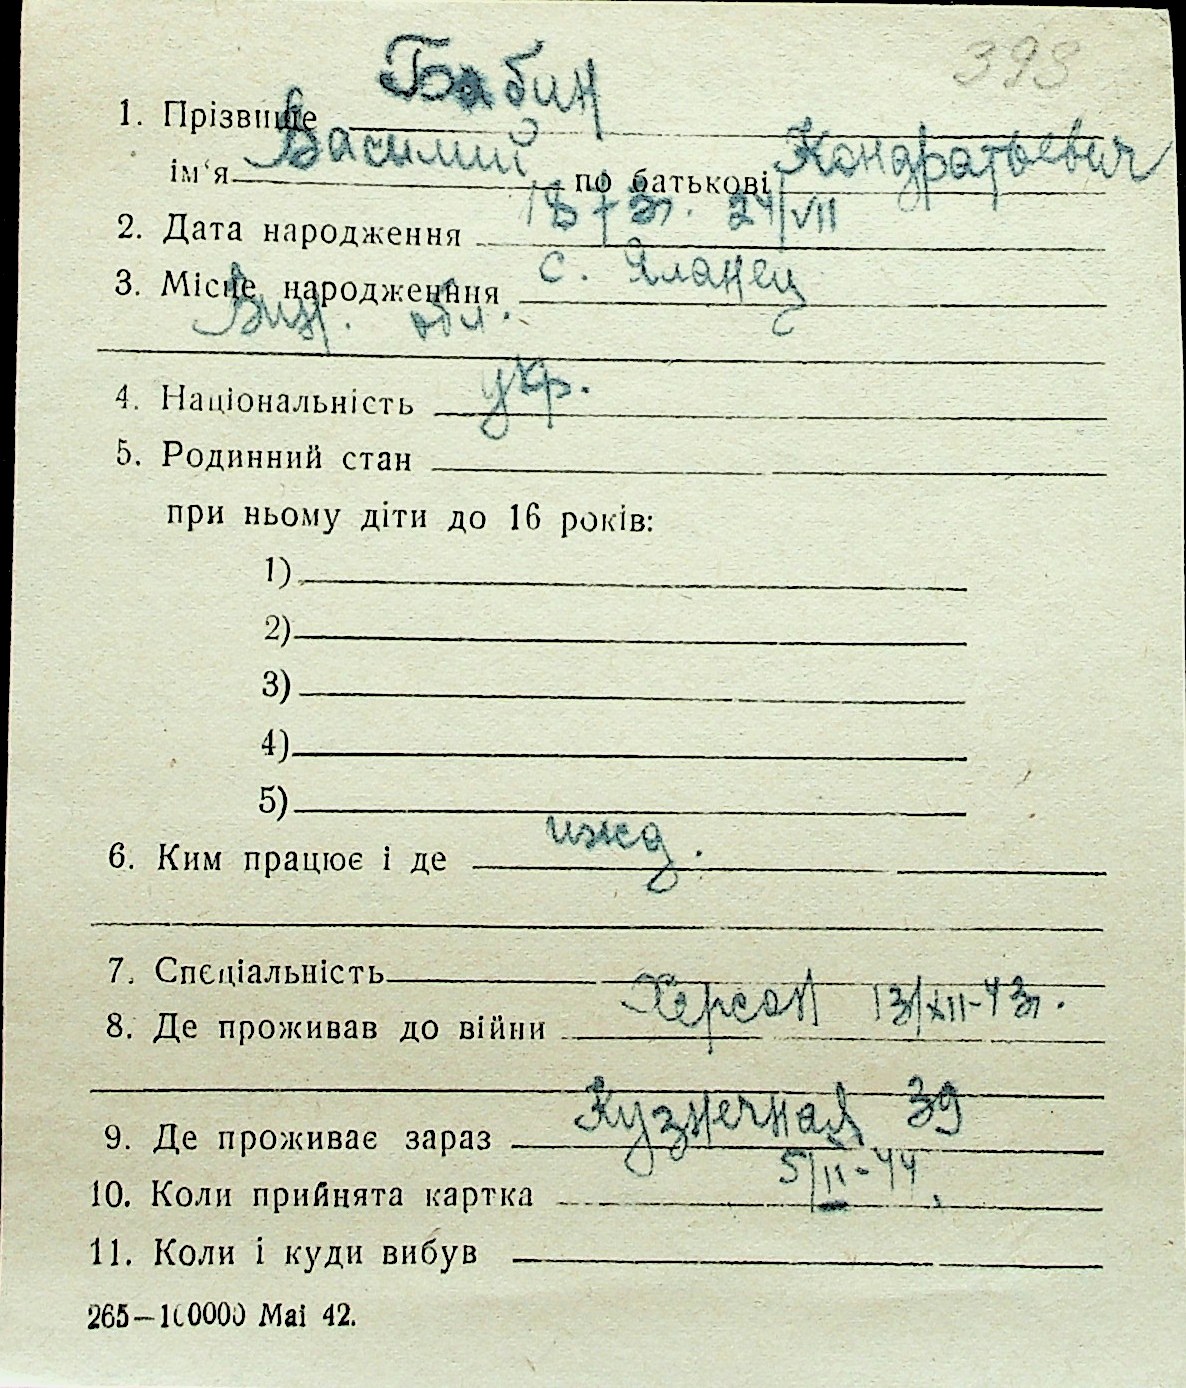 398
Бабин
1. Прізвище
Василий Кондратьевич
ім'я по батькові
24/VII
2. Дата народження
с. Яланец
3. Місце народженння
Вин. обл.
укр.
4. Національність
5. Родинний стан
при ньому діти до 16 років:
1)
2)
3)
4)
5)
ижд.
6. Ким працює і де
7. Спєціальність
Херсон 13/XII-43г.
8. Де проживав до війни
Кузнечная 39
9. Де проживає зараз
5/II-44
10. Коли прийнята картка
11. Коли і куди вибув
265—100000 Mai 42.